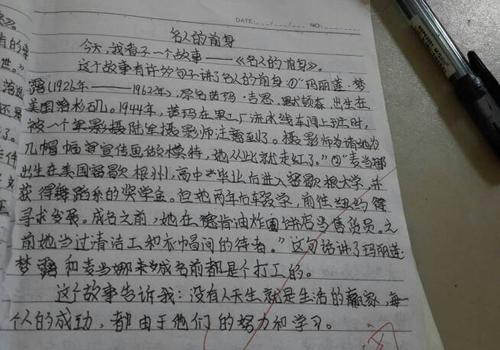 DATE: NO:
名人的前身
今天,我看了一个故事——《名人的前身》。
这个故事有许多句子讲了名人的前身①"玛丽莲·梦
露(1926年——1962年),原名茜玛·吉恩,出生在
美国洛杉矶。1944年,茜玛在军工厂流水线车间上班时,
被一个军影摄陆军摄影师注意到了。摄影师为请她为
几幅宣传画做模特,她从此就走红了。"②"麦当娜
出生在美国密歇根州,高中毕业后进入密歇根大学,并
获得舞蹈系的奖学金。但她两年后辍学,前往纽约
寻求发展。成名之前,她在肯油炸圈饼店当售货员。之
前她当过清洁工和衣帽间的侍者。"这句话讲了玛丽莲·
梦露和麦当娜成名前都是个打工的。
这个故事告诉我:没有人天生就是生活的赢家,每
个人的成功,都由于他们的努力和学习。